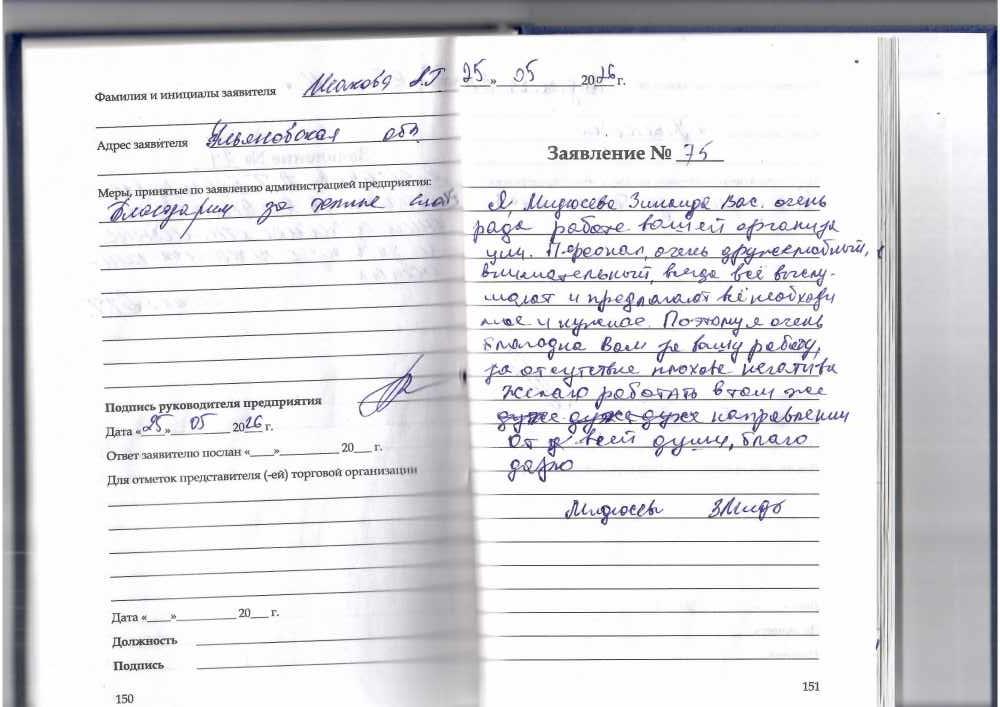 Фамилия и инициалы заявителя
Адрес заявителя Ульяновская обл.
Меры, принятые по заявлению администрацией предприятия:
Благодарим за теплые слова
Подпись руководителя предприятия
Дата «25» 05 2026 г.
Ответ заявителю послан «____»__________ 20___ г.
Для отметок представителя (-ей) торговой организации
Дата «____»__________ 20___ г.
Должность
Подпись
150
25 » 05 2026 г.
Заявление № 75
Я, Зинаида Вас. очень
рада работе вашей организа
ции. Персонал, очень дружелюбный,
внимательный, всегда всё выслу-
шают и предлагают всё необходи
мое и нужное. Поэтому я очень
благодна Вам за вашу работу,
за отсутствие плохова негатива
Желаю работать в том же
направлении
От всей души, благо
дарю
151